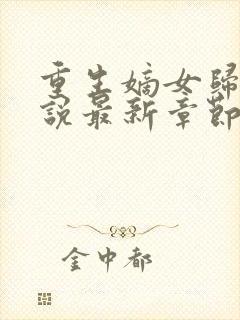 重生嫡女歸
說最新章節
金中都